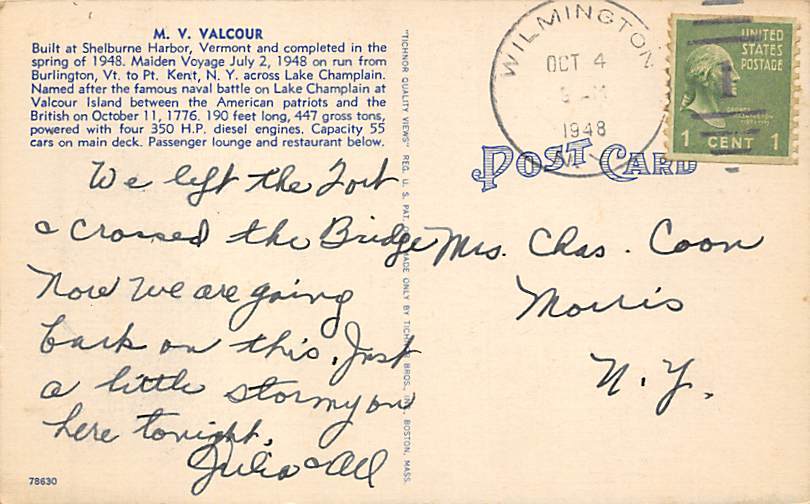 M. V. VALCOUR
Built at Shelburne Harbor, Vermont and completed in the
spring of 1948. Maiden Voyage July 2, 1948 on run from
Burlington, Vt. to Pt. Kent, N. Y. across Lake Champlain.
Named after the famous naval battle on Lake Champlain at
Valcour Island between the American patriots and the
British on October 11, 1776. 190 feet long, 447 gross tons,
powered with four 350 H.P. diesel engines. Capacity 55
cars on main deck. Passenger lounge and restaurant below.
We left the Fort
& crossed the Bridge
Now we are going
back on this. Just
a little stormy on
here tonight.
Julia & Al
78630
"TICHNOR QUALITY VIEWS" REG. U. S. PAT. MADE ONLY BY TICHNOR BROS., INC., BOSTON, MASS.
WILMINGTON
OCT 4
1948
UNITED
STATES
POSTAGE
GEORGE
WASHINGTON
1 CENT 1
POST CARD
Mrs. Chas. Coon
Morris
N.Y.